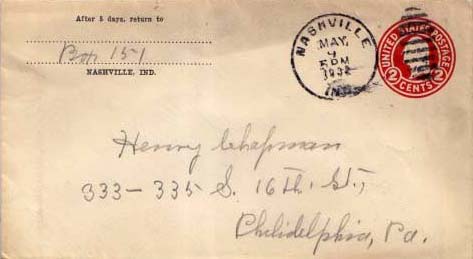 After 5 days, return to
Box 151
NASHVILLE, IND.
NASHVILLE
MAY
5 PM
1932
IND.
UNITED STATES POSTAGE
2 CENTS 2
Henry Chapman
333-335 S. 16th. St.,
Philidelphia, Pa.